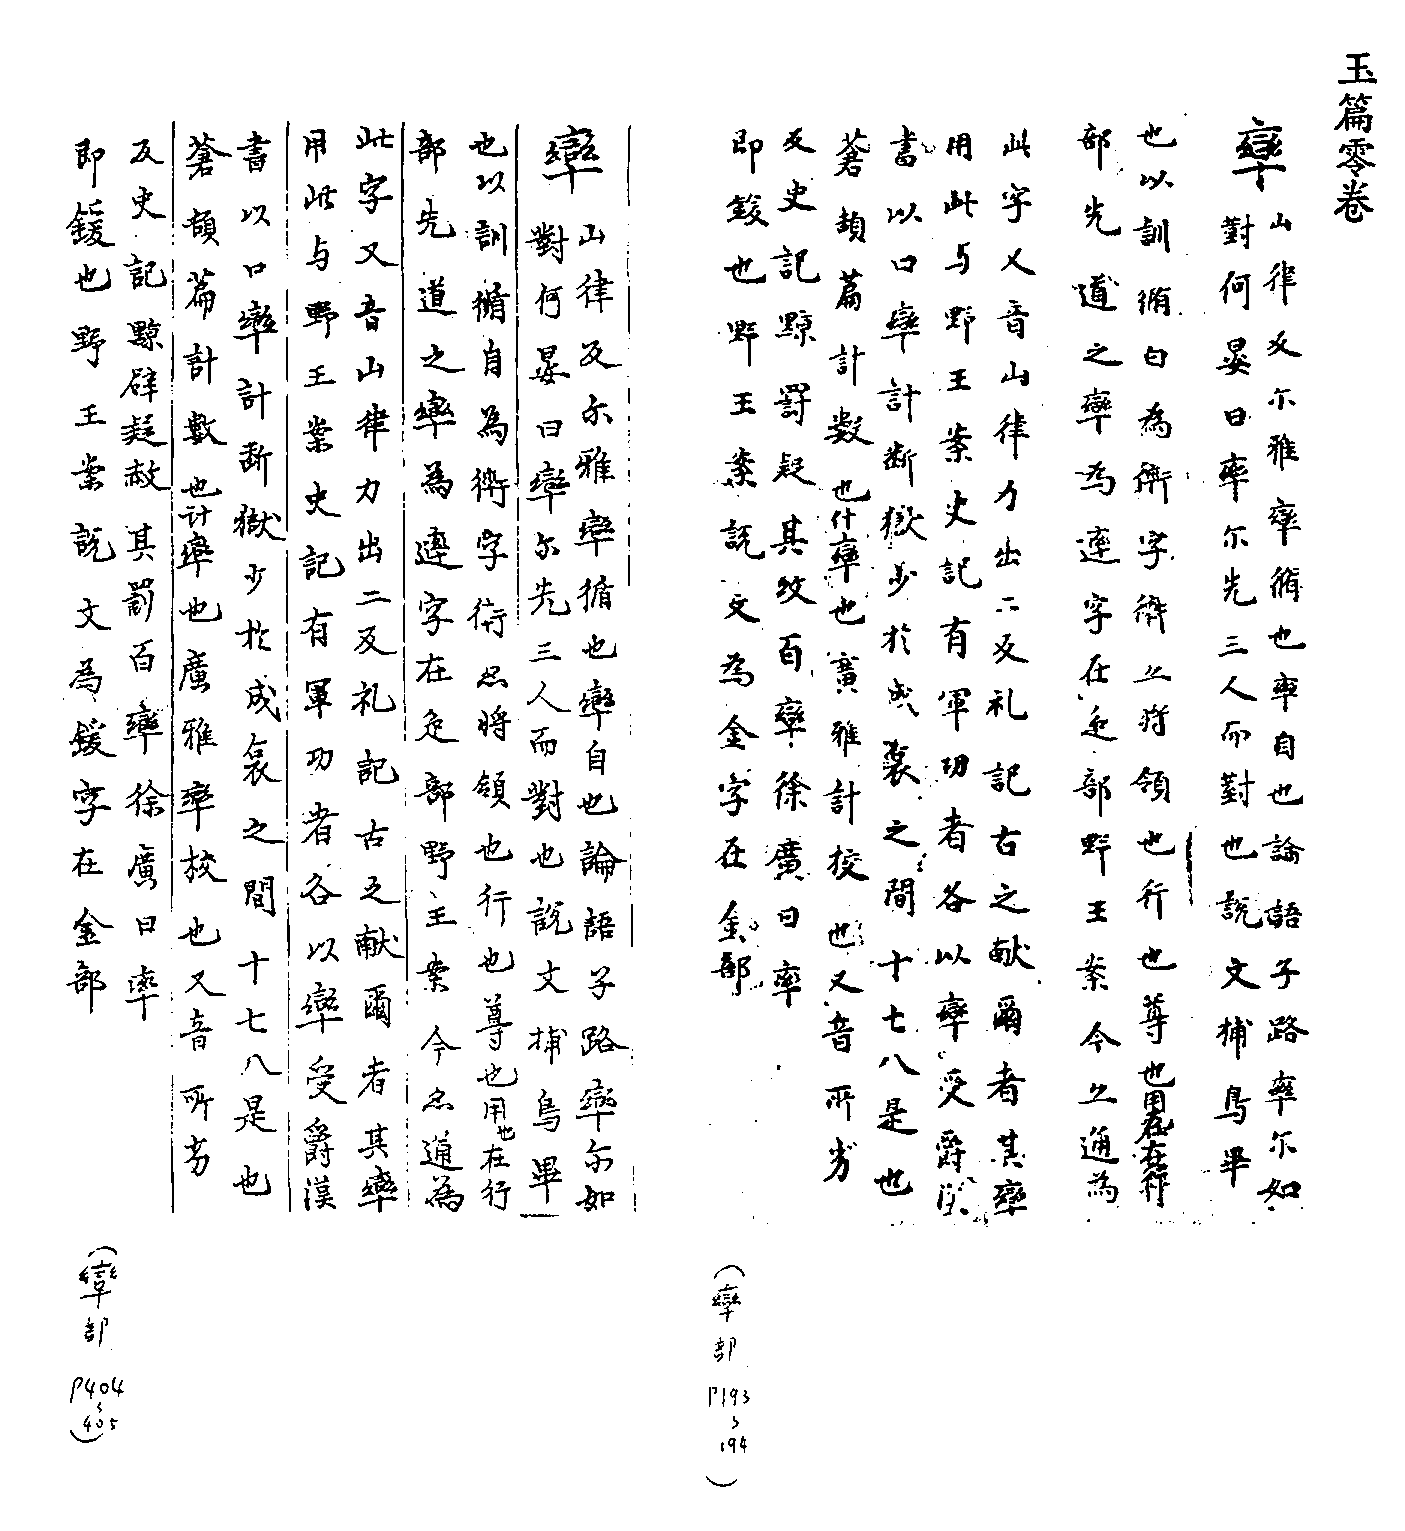 玉篇零卷
率 山律反尓雅率脩也率自也論語子路率尓如
對何晏曰率尓先三人而對也說文捕鳥畢
也以訓脩自為衛字衛亦将領也行也尊也用在在行
部先道之率為逹字在辵部野王案今亦通為
此字又音山律力出二反礼記古之献爾者其率
用此与野王案史記有軍功者各以率受爵漢
書以口率計断獄少於成裒之間十七八是也
蒼頡篇計数也什率也廣雅計挍也又音所劣
反史記黥罰疑其纹百率徐廣曰率
即鍰也野王案說文為金字在金部
率 山律反尓雅率循也率自也論語子路率尓如
對何晏曰率尓先三人而對也說文捕鳥畢
也以訓脩自為衛字衛亦将領也行也尊也用也在行
部先道之率為逹字在辵部野王案今亦通為
此字又音山律力出二反礼記古之献爾者其率
用此与野王案史記有軍功者各以率受爵漢
書以口率計断獄少於成裒之間十七八是也
蒼頡篇計數也計率也廣雅率校也又音所劣
反史記黥辟疑赦其罰百率徐廣曰率
即鍰也野王案說文為鍰字在金部
(率部 P193~194)
(率部 P404~405)